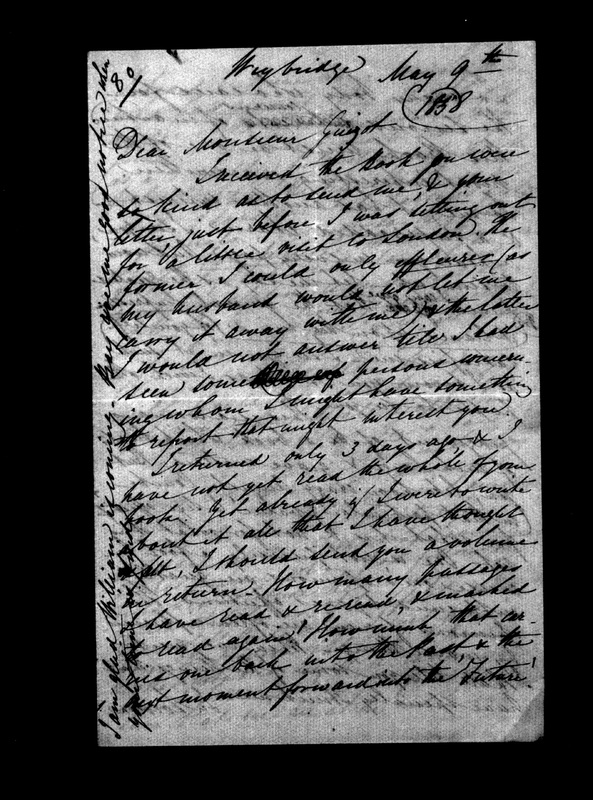 80/
Weybridge May 9th
1858
Dear Monsieur Guizot
I received the book you were
so kind as to send me, & your
letter, just before I was setting out
for a little visit to London. The
former I could only effleurer (as
my husband would not let me
carry it away with me) & the latter
I would not answer till I had
seen some persons concern-
ing whom I might have something
to report that might interest you.
I returned only 3 days ago, & I
have not yet read the whole of your
book. Yet already if I were to write
about it all that I have thought
& felt, I should send you a volume
in return. How many passages
I have read & re-read, & marked
to read again! How much that car-
ries one back into the Past, & the
next moment forward into the Future!
I am glad William is coming. Pray give me good notice when